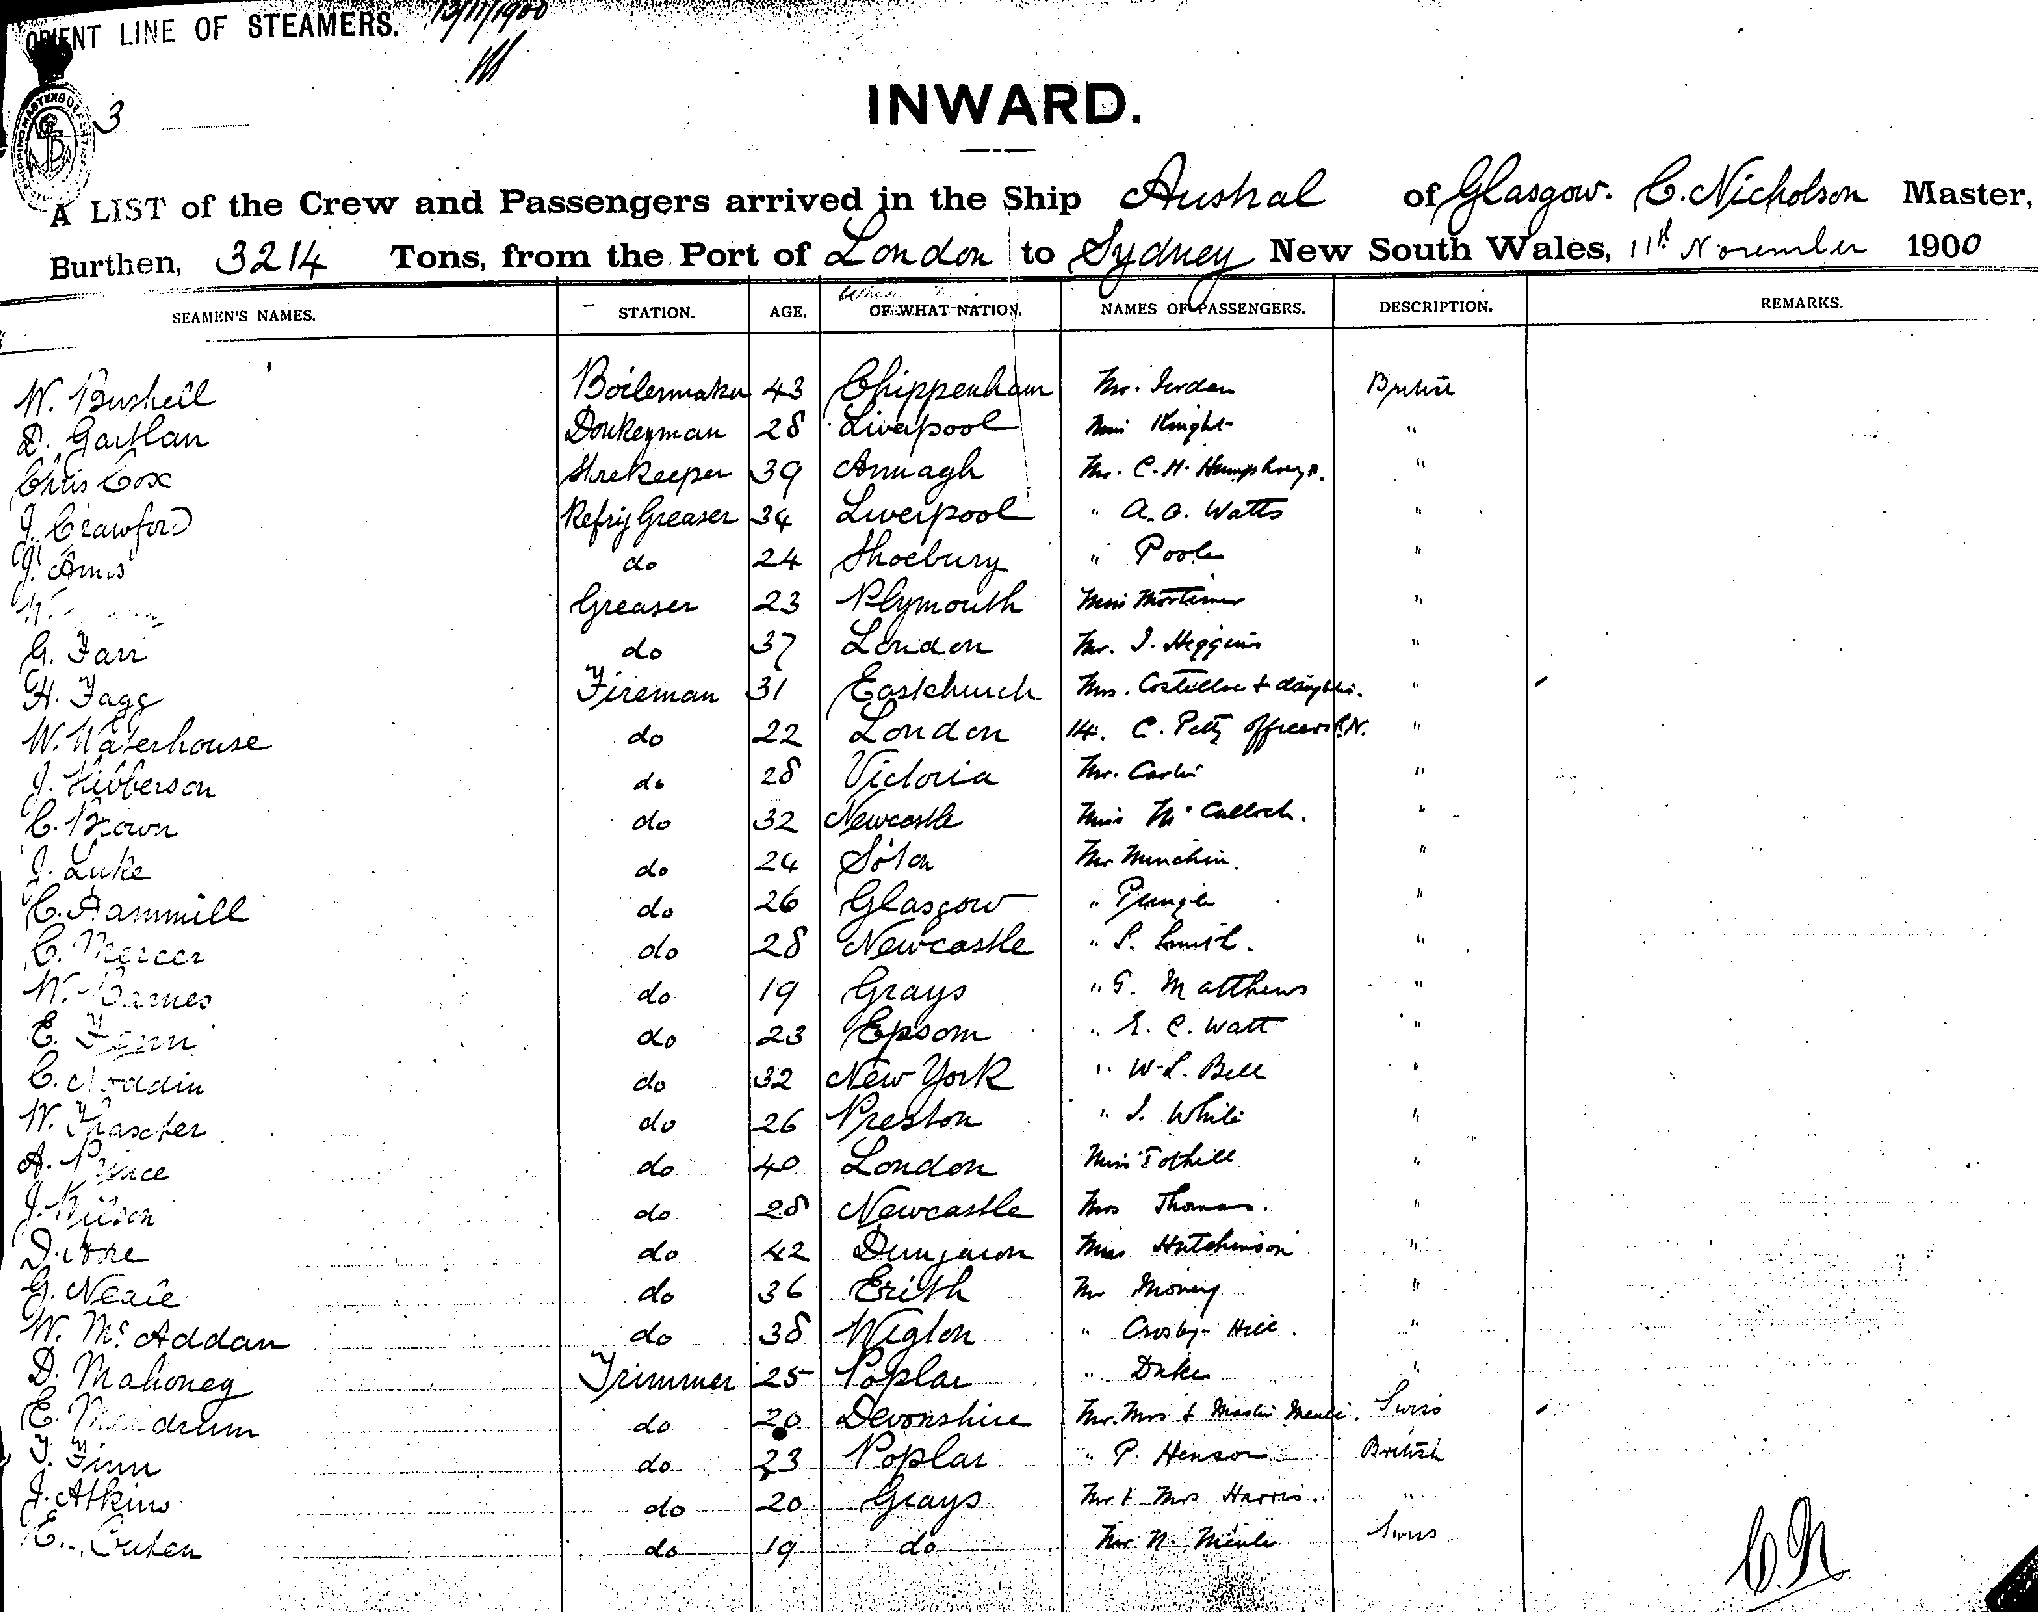 ORIENT LINE OF STEAMERS. 13/11/1900
3
INWARD.
A LIST of the Crew and Passengers arrived in the Ship Austral of Glasgow. C. Nicholson Master,
Burthen, 3214 Tons, from the Port of London to Sydney New South Wales, 11th November 1900
SEAMEN'S NAMES. STATION. AGE. OF WHAT NATION. NAMES OF PASSENGERS. DESCRIPTION. REMARKS.
W. Bushell Boilermaker 43 Chippenham Mr. Jordan British
D. Garthan Donkeyman 28 Liverpool Miss Knight "
Chris Cox Storekeeper 39 Armagh Mr. C. H. Humphreys. "
J. Crawford Refrig Greaser 34 Liverpool " A. O. Watts "
J. Ames do 24 Shoebury " Poole "
Greaser 23 Plymouth Miss Mortimer "
G. Farr do 37 London Mr. J. Higgins "
H. Fagg Fireman 31 Eastchurch Mrs. Costelloe & daughter. "
W. Waterhouse do 22 London 14. C. Petty Officers R.N. "
J. Hibberson do 28 Victoria Mr. "
C. Brown do 32 Newcastle Miss McCulloch. "
J. Luke do 24 So'ton Mr Minchin. "
C. Hammill do 26 Glasgow " Pringle "
C. Mercer do 28 Newcastle " S. Smith. "
W. Barnes do 19 Grays " G. Matthews "
E. Fenn do 23 Epsom " E. C. Watt "
C. Noddin do 32 New York " W. L. Bell "
W. do 26 Preston " J. White "
A. Prince do 40 London Miss Tothill "
J. Wilson do 28 Newcastle Mrs Thomas. "
D. do 42 Dungaron Miss Hutchinson "
G. Neale do 36 Erith Mr Money "
W. McAddan do 38 Wigton " Crosby-Hill. "
D. Mahoney Trimmer 25 Poplar " Duke "
E. Meldrum do 20 Devonshire Mr. Mrs & Master Swiss
T. Finn do 23 Poplar " P. Henson British
J. Atkins do 20 Grays Mr & Mrs Harris. "
E. do 19 do Mr. N. Swiss
CN